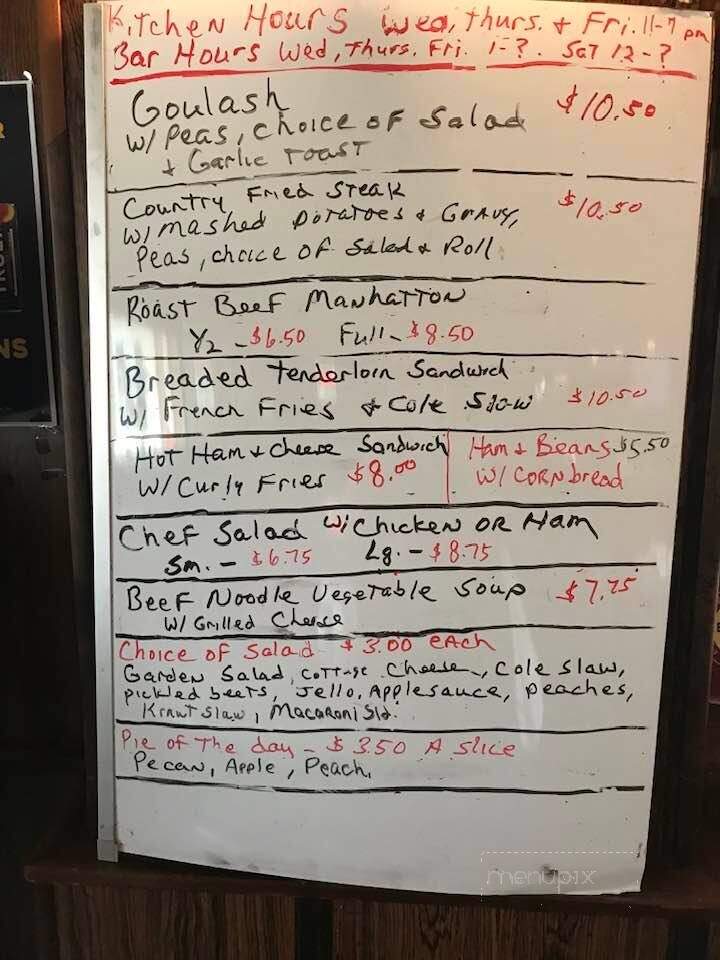 Kitchen Hours Wed, Thurs. + Fri. 11-7 pm
Bar Hours Wed, Thurs. Fri. 1-? . Sat 12-?
Goulash $10.50
w/ Peas, Choice of Salad
+ Garlic Toast
Country Fried Steak $10.50
w/ Mashed Potatoes + Gravy,
Peas, choice of Salad + Roll
Roast Beef Manhatton
1/2 - $6.50 Full - $8.50
Breaded Tenderloin Sandwich
w/ French Fries + Cole Slaw $10.50
Hot Ham + Cheese Sandwich
w/ Curly Fries $8.00
Ham + Beans $5.50
w/ Cornbread
Chef Salad w/ Chicken or Ham
Sm. - $6.75 Lg. - $8.75
Beef Noodle Vegetable Soup $7.75
w/ Grilled Cheese
Choice of Salad $3.00 each
Garden Salad, Cottage Cheese, Cole Slaw,
pickled beets, Jello, Applesauce, peaches,
Kraut Slaw, Macaroni Sld.
Pie of The day - $3.50 A Slice
Pecan, Apple, Peach,
menupix
NS